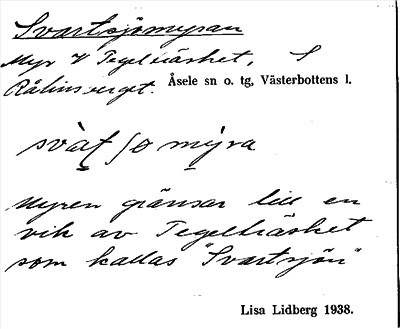 Svartsjömyran
Myr V Tegelträsket, S
Rålinsberget. Åsele sn o. tg, Västerbottens l.
svàt̯ ʃo mỳra
Myren gränsar till en
vik av Tegelträsket
som kallas "Svartsjön"
Lisa Lidberg 1938.